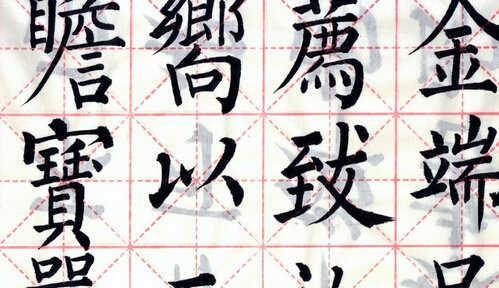 金端
薦致
嚮以
瞻寶